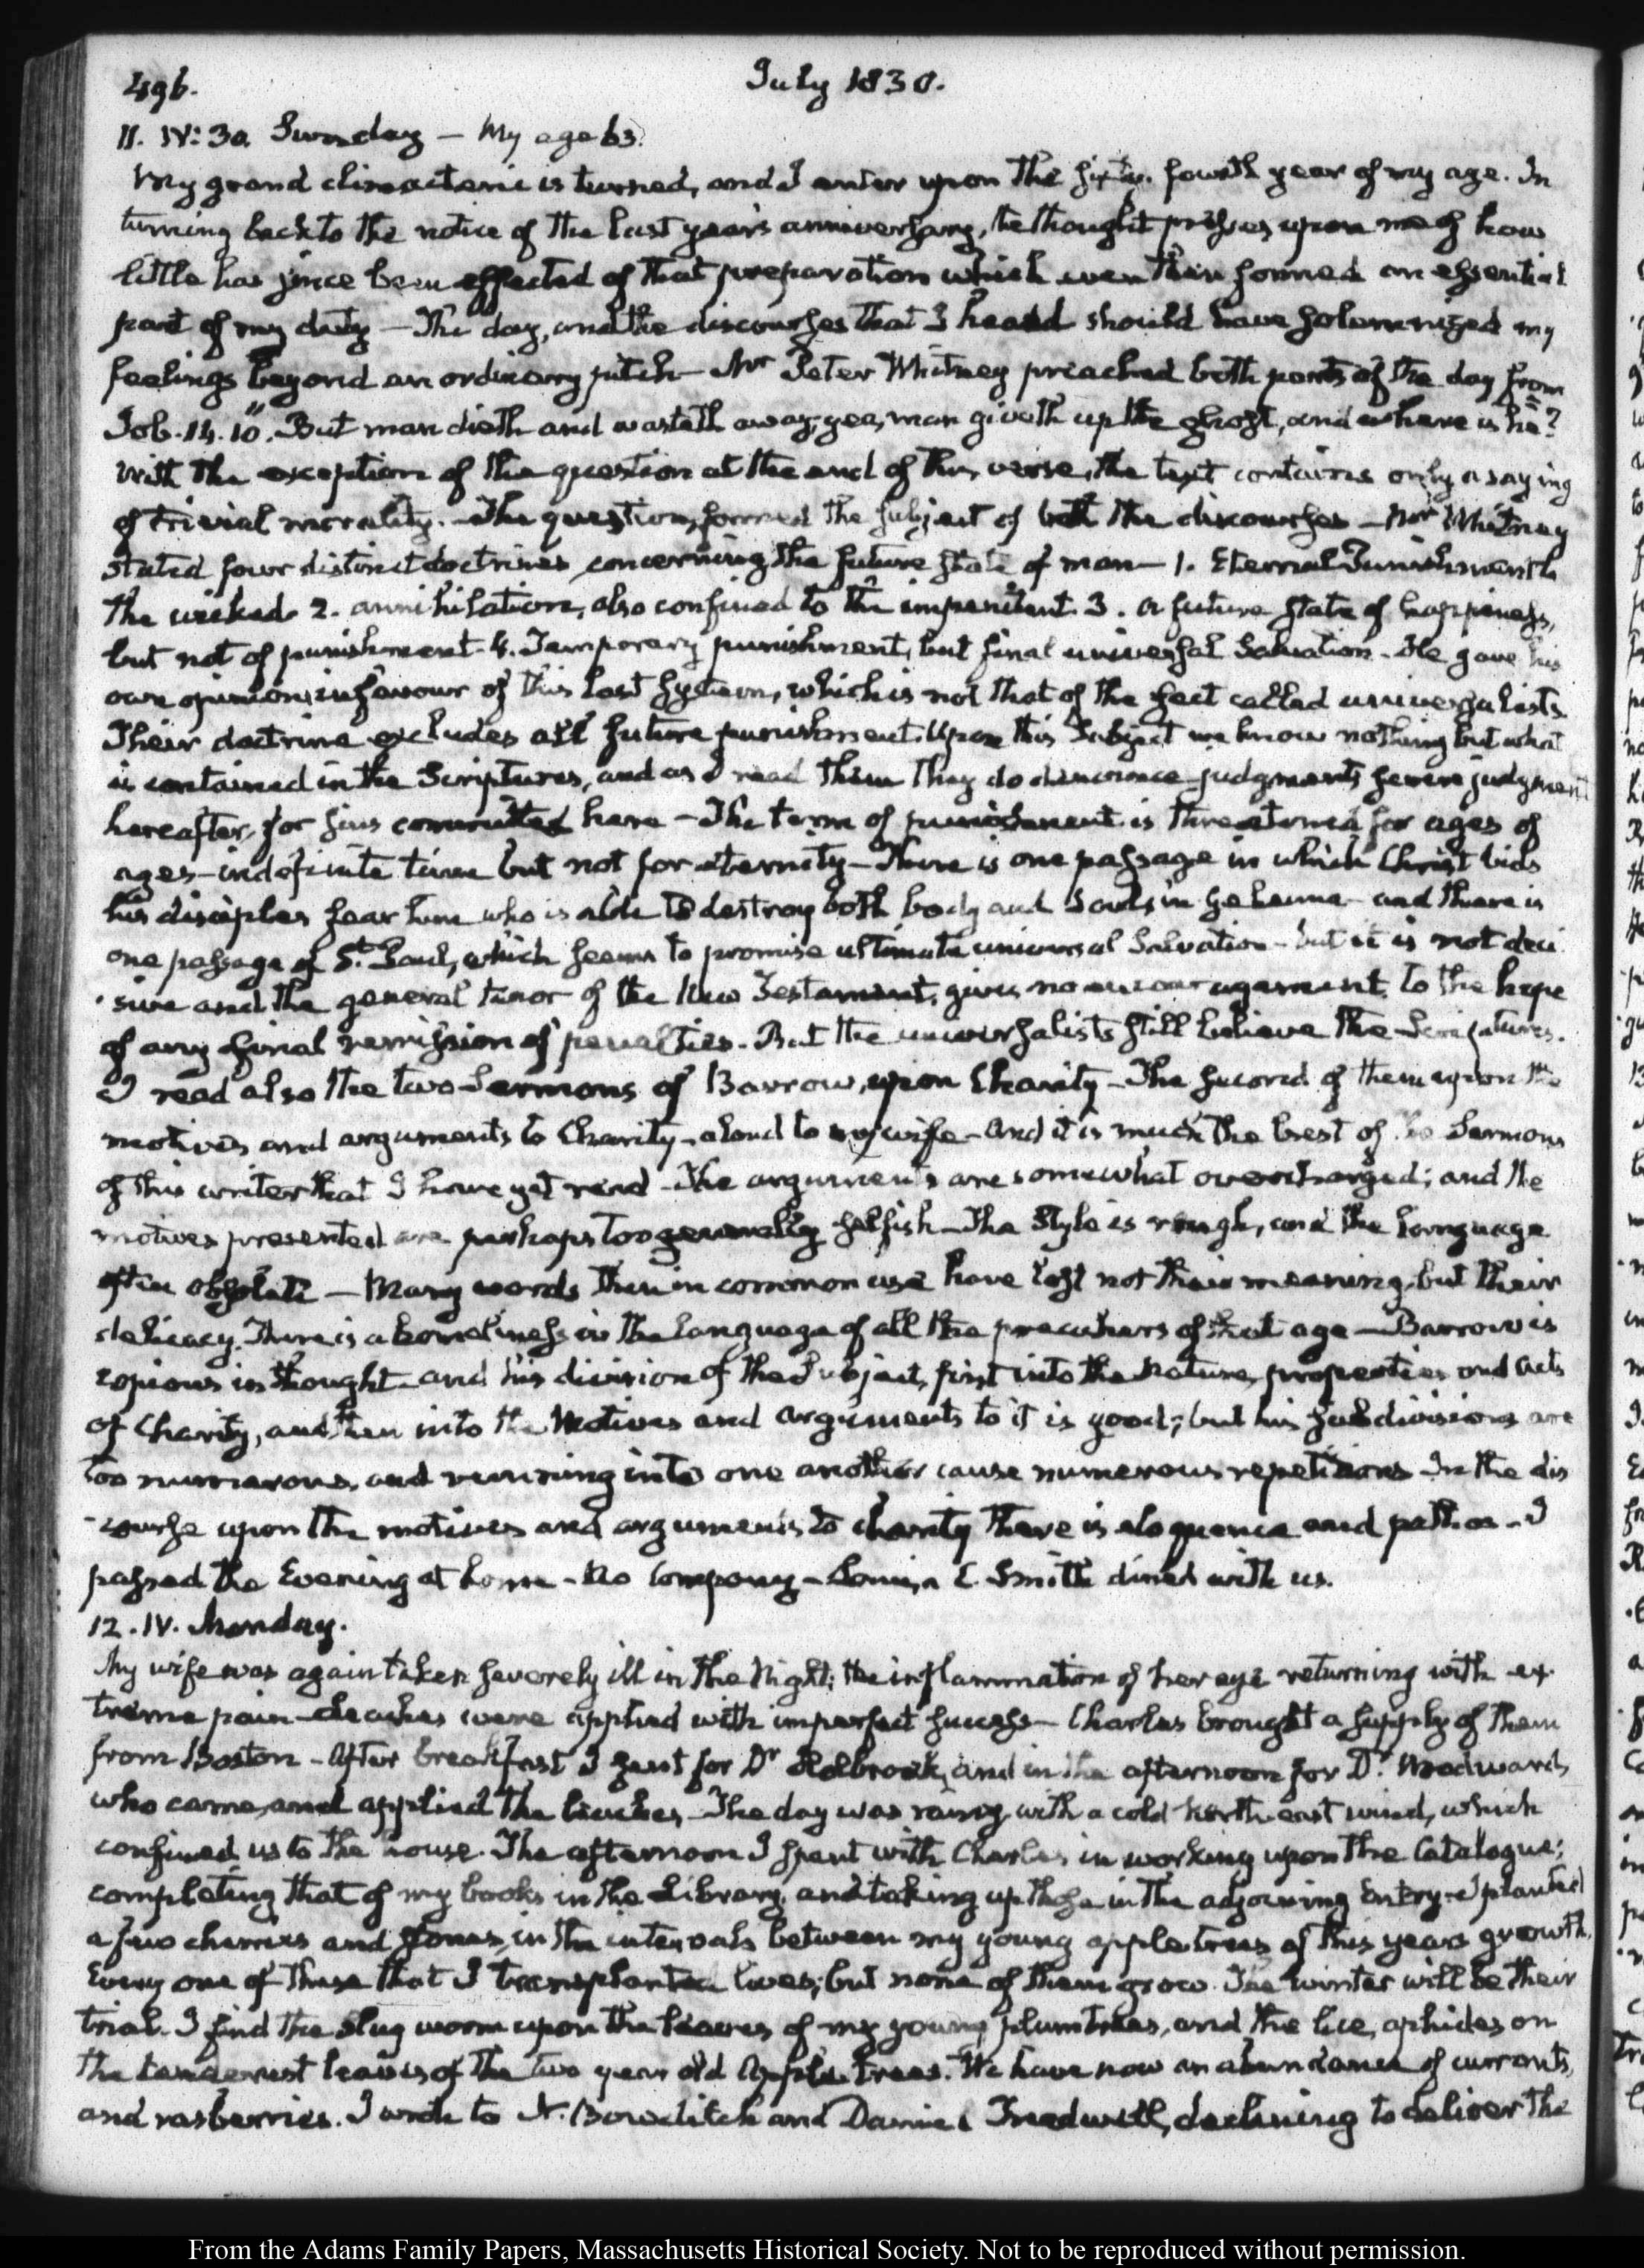 496.
July 1830.
11. IV: 30. Sunday — My age 63.
My grand climacteric is turned, and I enter upon the sixty-fourth year of my age. In
turning back to the notice of the last year's anniversary, the thought presses upon me of how
little has since been effected of that preparation which even then formed an essential
part of my duty — The day, and the discourses that I heard should have solemnized my
feelings beyond an ordinary pitch — Mr Peter Whitney preached both parts of the day from
Job. 14. 10. "But man dieth and wasteth away, yea, man giveth up the ghost, and where is he?"
With the exception of the question at the end of this verse, the text contains only a saying
of trivial morality. — The question, formed the subject of both the discourses — Mr Whitney
stated four distinct doctrines concerning the future state of man — 1. Eternal Punishment to
the wicked. 2. annihilation, also confined to the impenitent. 3. a future state of happiness,
but not of punishment. 4. Temporary punishment, but final universal Salvation. He gave his
own opinion in favour of this last system, which is not that of the sect called universalists.
Their doctrine excludes all future punishment. Upon this Subject we know nothing but what
is contained in the Scriptures, and as I read them they do denounce judgments severe judgment
hereafter, for sins committed here — The term of punishment is threatened for ages of
ages — indefinite time but not for eternity — There is one passage in which Christ bids
his disciples fear him who is able to destroy both body and Souls in gehenna — and there is
one passage of St. Paul, which seems to promise ultimate universal Salvation — but it is not deci
-sive and the general tenor of the New Testament, gives no encouragement to the hope
of any final remission of penalties. But the universalists still believe the Scriptures.
I read also the two Sermons of Barrow, upon Charity — The second of them upon the
motives and arguments to Charity — aloud to my wife — and it is much the best of the Sermons
of this writer that I have yet read — The arguments are somewhat overcharged; and the
motives presented are perhaps too generally selfish — The Style is rough, and the language
often obsolete — Many words then in common use have lost not their meaning, but their
delicacy. There is a homeliness in the language of all the preachers of that age — Barrow is
copious in thought and his division of the Subject, first into the Nature, properties and acts
of Charity, and then into the Motives and arguments to it is good; but his subdivisions are
too numerous, and running into one another cause numerous repetitions. In the dis
-course upon the motives and arguments to charity there is eloquence and pathos — I
passed the Evening at home — No Company — Louisa C. Smith dined with us.
12. IV. Monday.
My wife was again taken severely ill in the Night; the inflammation of her eye returning with ex-
treme pain — Leaches were applied with imperfect success — Charles brought a supply of them
from Boston — After breakfast I sent for Dr Holbrook, and in the afternoon for Dr. Woodward,
who came, and applied the leeches — The day was rainy, with a cold North east wind, which
confined us to the house. The afternoon I spent with Charles in working upon the Catalogue;
completing that of my books in the Library, and taking up those in the adjoining Entry. I planted
a few cherries and stones, in the intervals between my young apple trees of this years growth.
Every one of these that I transplanted lives; but none of them grow. The winter will be their
trial. I find the slug worm upon the leaves of my young plumtrees, and the lice, aphides on
the tenderest leaves of the two year old Apple trees. We have now an abundance of currants,
and rasberries. I wrote to N. Bowditch and Daniel Treadwell, declining to deliver the
From the Adams Family Papers, Massachusetts Historical Society. Not to be reproduced without permission.